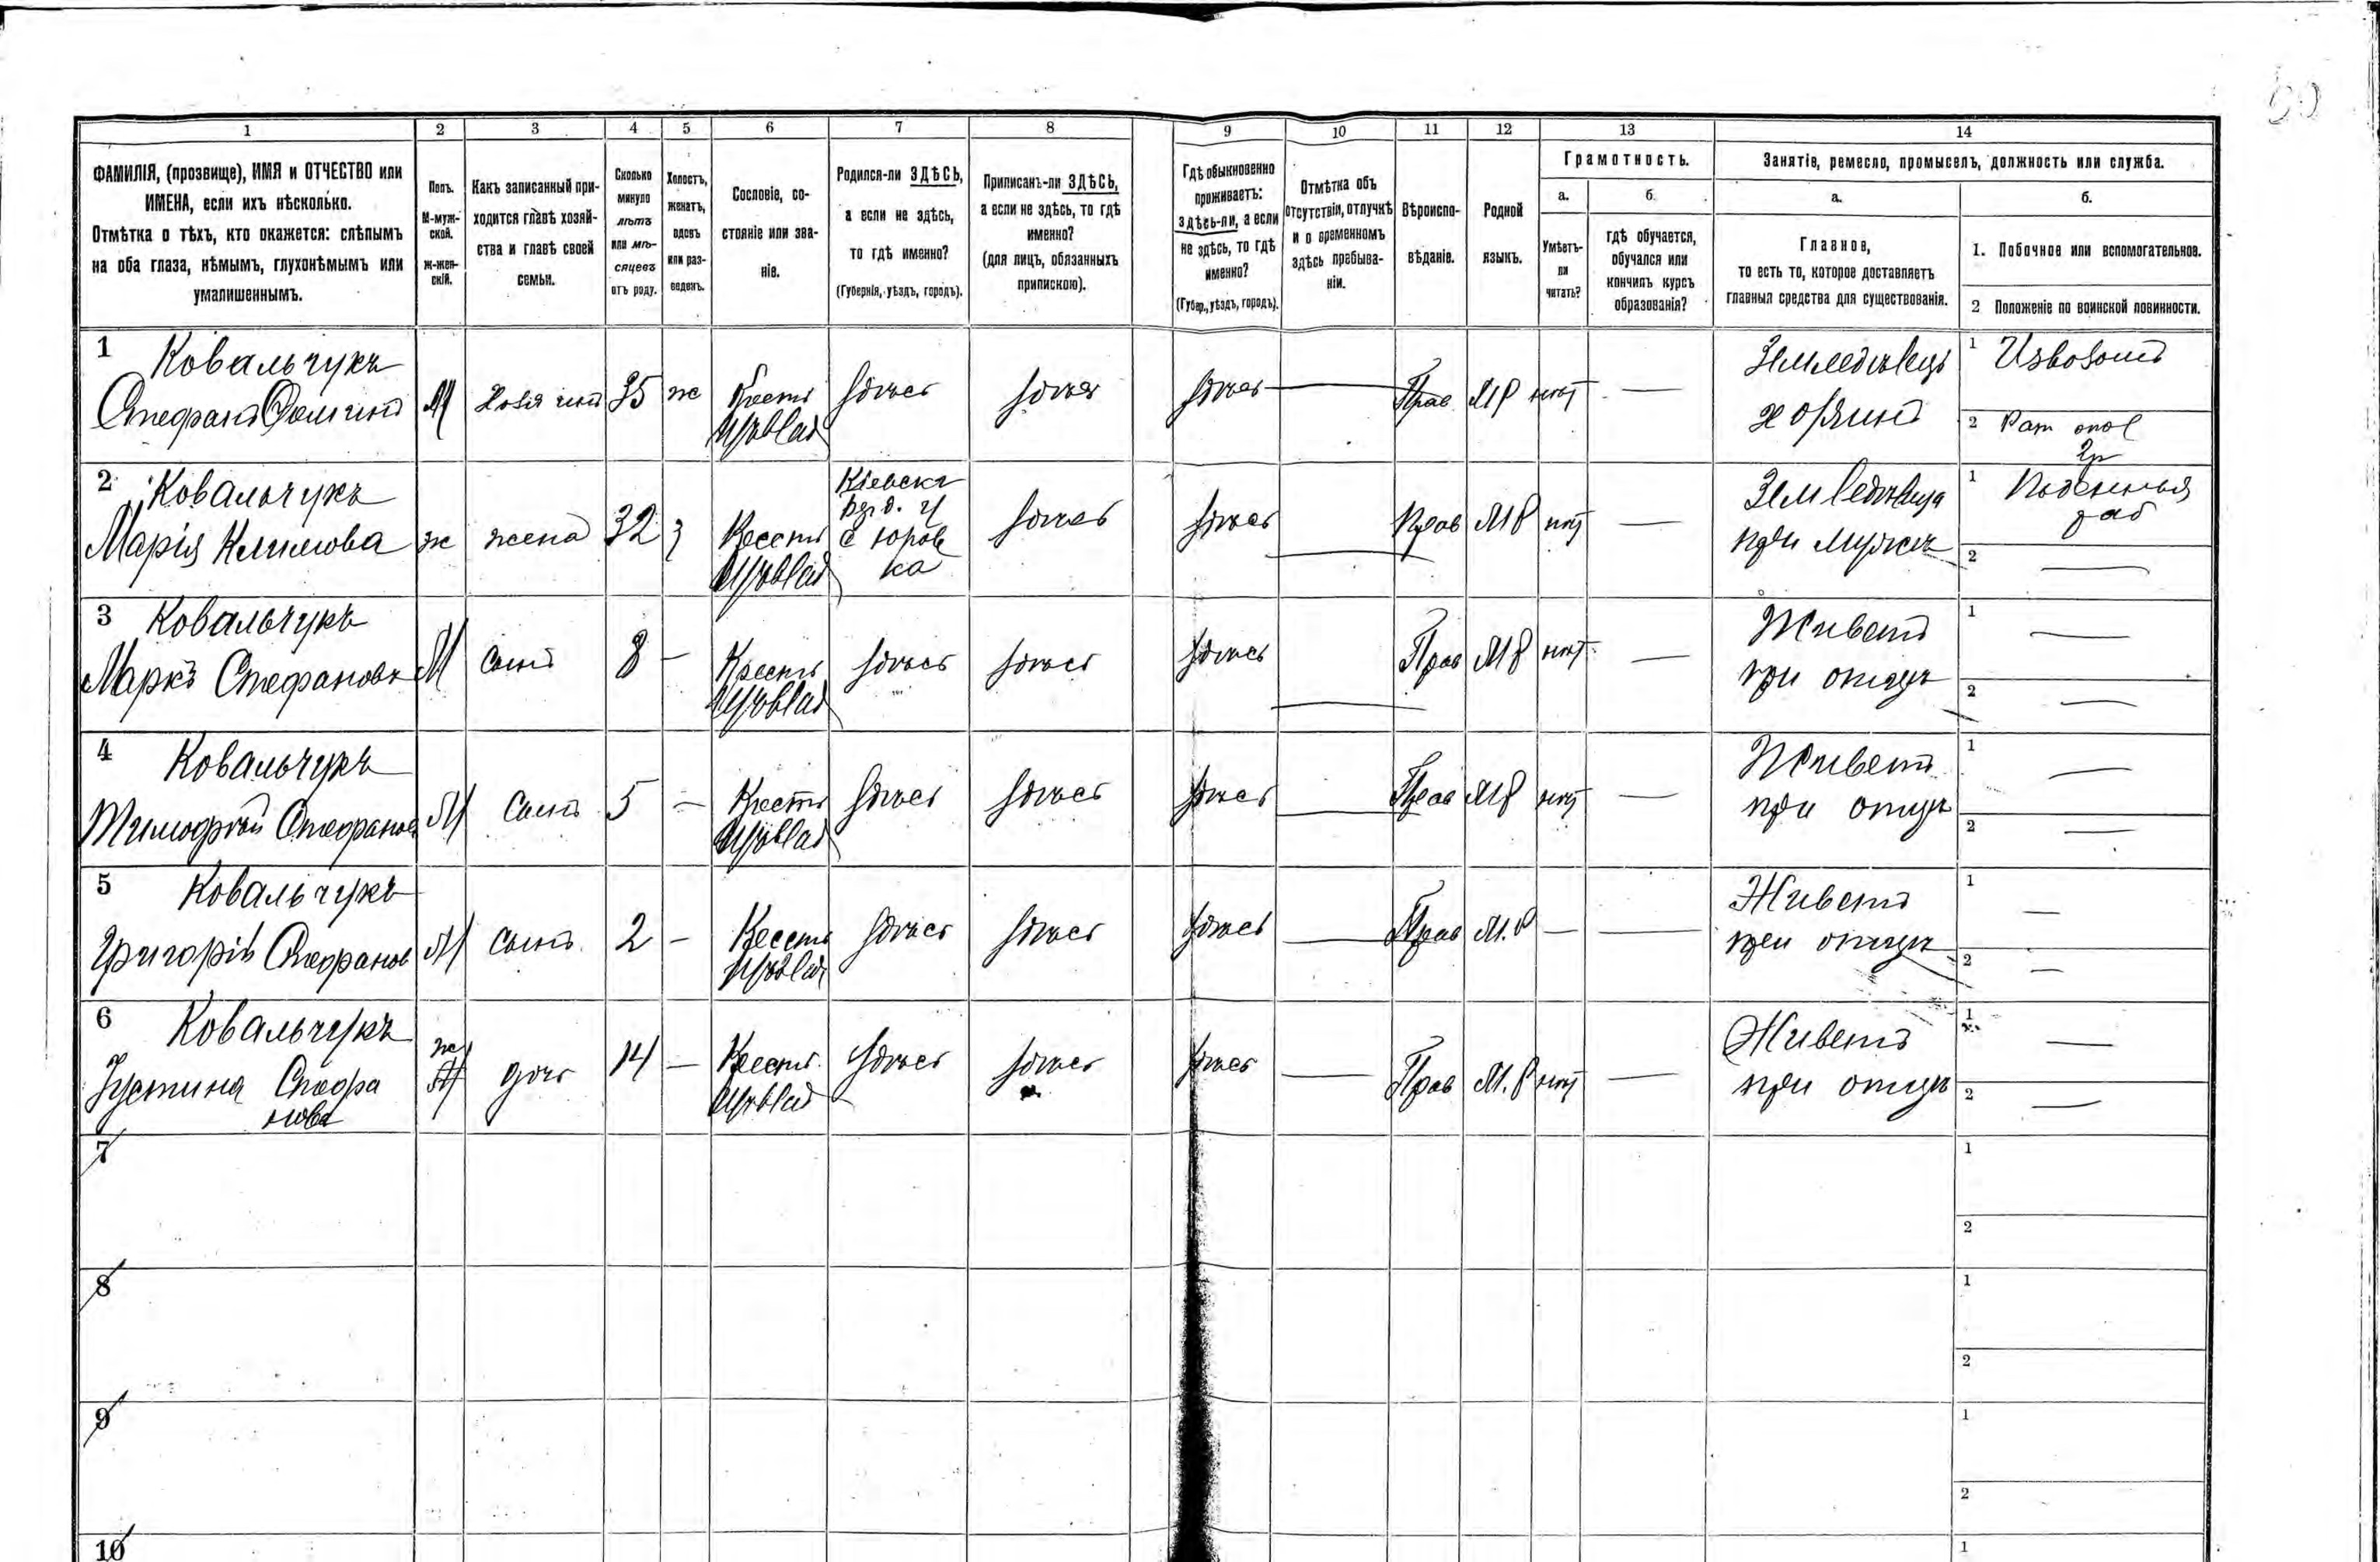 50
1
2
3
4
5
6
7
8
9
10
11
12
13
14
ФАМИЛІЯ, (прозвище), ИМЯ и ОТЧЕСТВО или
ИМЕНА, если ихъ нѣсколько.
Отмѣтка о тѣхъ, кто окажется: слѣпымъ
на оба глаза, нѣмымъ, глухонѣмымъ или
умалишеннымъ.
Полъ.
М-муж-
ской.
Ж-жен-
скій.
Какъ записанный при-
ходится главѣ хозяй-
ства и главѣ своей
семьи.
Сколько
минуло
лѣтъ
или мѣ-
сяцевъ
отъ роду.
Холостъ,
женатъ,
вдовъ
или раз-
веденъ.
Сословіе, со-
стояніе или зва-
ніе.
Родился-ли ЗДѢСЬ,
а если не здѣсь,
то гдѣ именно?
(Губернія, уѣздъ, городъ).
Приписанъ-ли ЗДѢСЬ,
а если не здѣсь, то гдѣ
именно?
(для лицъ, обязанныхъ
припискою).
Гдѣ обыкновенно
проживаетъ:
здѣсь-ли, а если
не здѣсь, то гдѣ
именно?
(Губер., уѣздъ, городъ).
Отмѣтка объ
отсутствіи, отлучкѣ
и о временномъ
здѣсь пребыва-
ніи.
Вѣроиспо-
вѣданіе.
Родной
языкъ.
Грамотность.
а.
Умѣетъ-
ли
читать?
б.
гдѣ обучается,
обучался или
кончилъ курсъ
образованія?
Занятіе, ремесло, промыселъ, должность или служба.
а.
Главное,
то есть то, которое доставляетъ
главныя средства для существованія.
б.
1. Побочное или вспомогательное.
2 Положеніе по воинской повинности.
1 Ковальчукъ
Стефанъ
М
Хозяинъ
35
ж
Крестъ
здѣсь
здѣсь
здѣсь
Прав
МР
нѣт
Земледѣлецъ
хозяинъ
1 Извозомъ
2 Рат опол
2р
2 Ковальчукъ
Марія Климова
ж
жена
32
з
Крестъ
Кіевска
с Юров
ка
здѣсь
здѣсь
Прав
МР
нѣт
Землѣдѣлица
при мужѣ
1 Поденная
раб
2
3 Ковальчукъ
Маркъ Стефановъ
М
сынъ
8
Крестъ
здѣсь
здѣсь
здѣсь
Прав
МР
нѣт
Живетъ
при отцѣ
1
2
4 Ковальчукъ
Тимофѣй Стефанов
М
сынъ
5
Крестъ
здѣсь
здѣсь
здѣсь
Прав
МР
нѣт
Живетъ
при отцѣ
1
2
5 Ковальчукъ
Григорій Стефанов
М
сынъ
2
Крестъ
здѣсь
здѣсь
здѣсь
Прав
М.Р
Живетъ
при отцѣ
1
2
6 Ковальчукъ
Іустина Стефа
нова
ж
М
дочь
14
Крестъ
здѣсь
здѣсь
здѣсь
Прав
М.Р
нѣт
Живетъ
при отцѣ
1
2
7
1
2
8
1
2
9
1
2
10
1